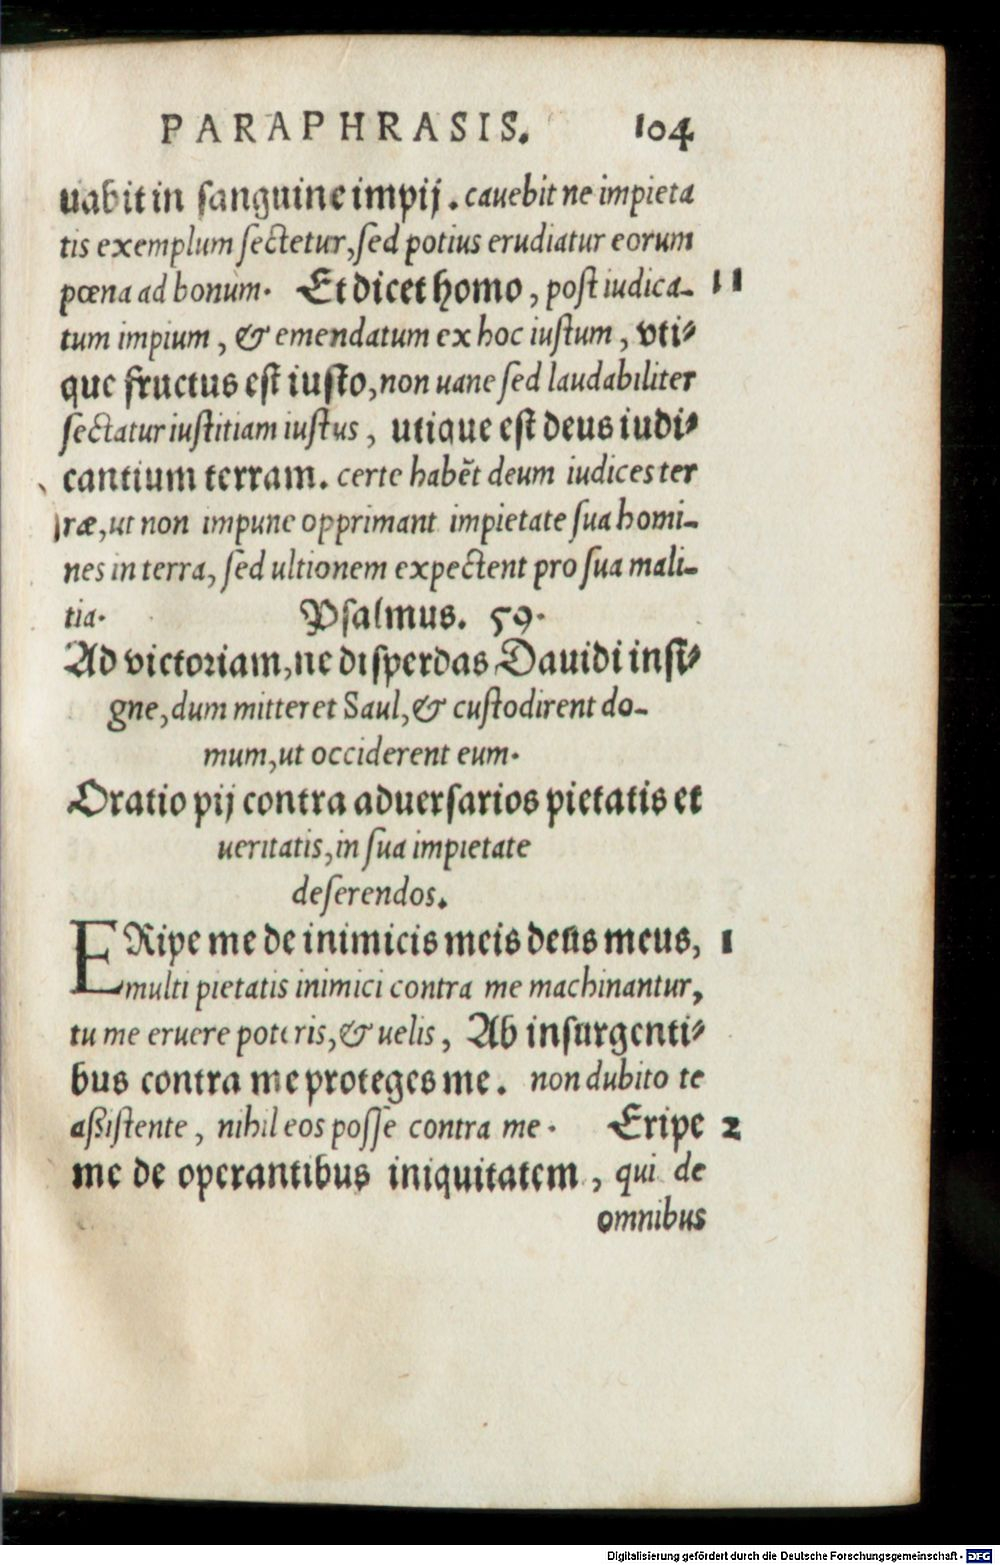 PARAPHRASIS. 104
uabit in sanguine impij. cauebit ne impieta
tis exemplum sectetur, sed potius erudiatur eorum
pœna ad bonum. Et dicet homo, post iudica- 11
tum impium, & emendatum ex hoc iustum, vti⸗
que fructus est iusto, non uane sed laudabiliter
sectatur iustitiam iustus, utique est deus iudi⸗
cantium terram. certe habẽt deum iudices ter
ræ, ut non impune opprimant impietate sua homi-
nes in terra, sed ultionem expectent pro sua mali-
tia. Psalmus. 59.
Ad victoriam, ne disperdas Dauidi insi⸗
gne, dum mitteret Saul, & custodirent do-
mum, ut occiderent eum.
Oratio pij contra aduersarios pietatis et
ueritatis, in sua impietate
deserendos.
ERipe me de inimicis meis deus meus, 1
multi pietatis inimici contra me machinantur,
tu me eruere poteris, & uelis, Ab insurgenti⸗
bus contra me proteges me. non dubito te
assistente, nihil eos posse contra me. Eripe 2
me de operantibus iniquitatem, qui de
omnibus
Digitalisierung gefördert durch die Deutsche Forschungsgemeinschaft - DFG